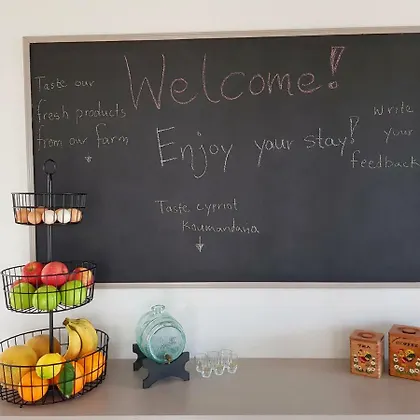 Welcome!
Taste our
fresh products
from our farm
Enjoy your stay!
Write
your
feedback
Taste cypriot
Koumandaria
TEA
COFFEE